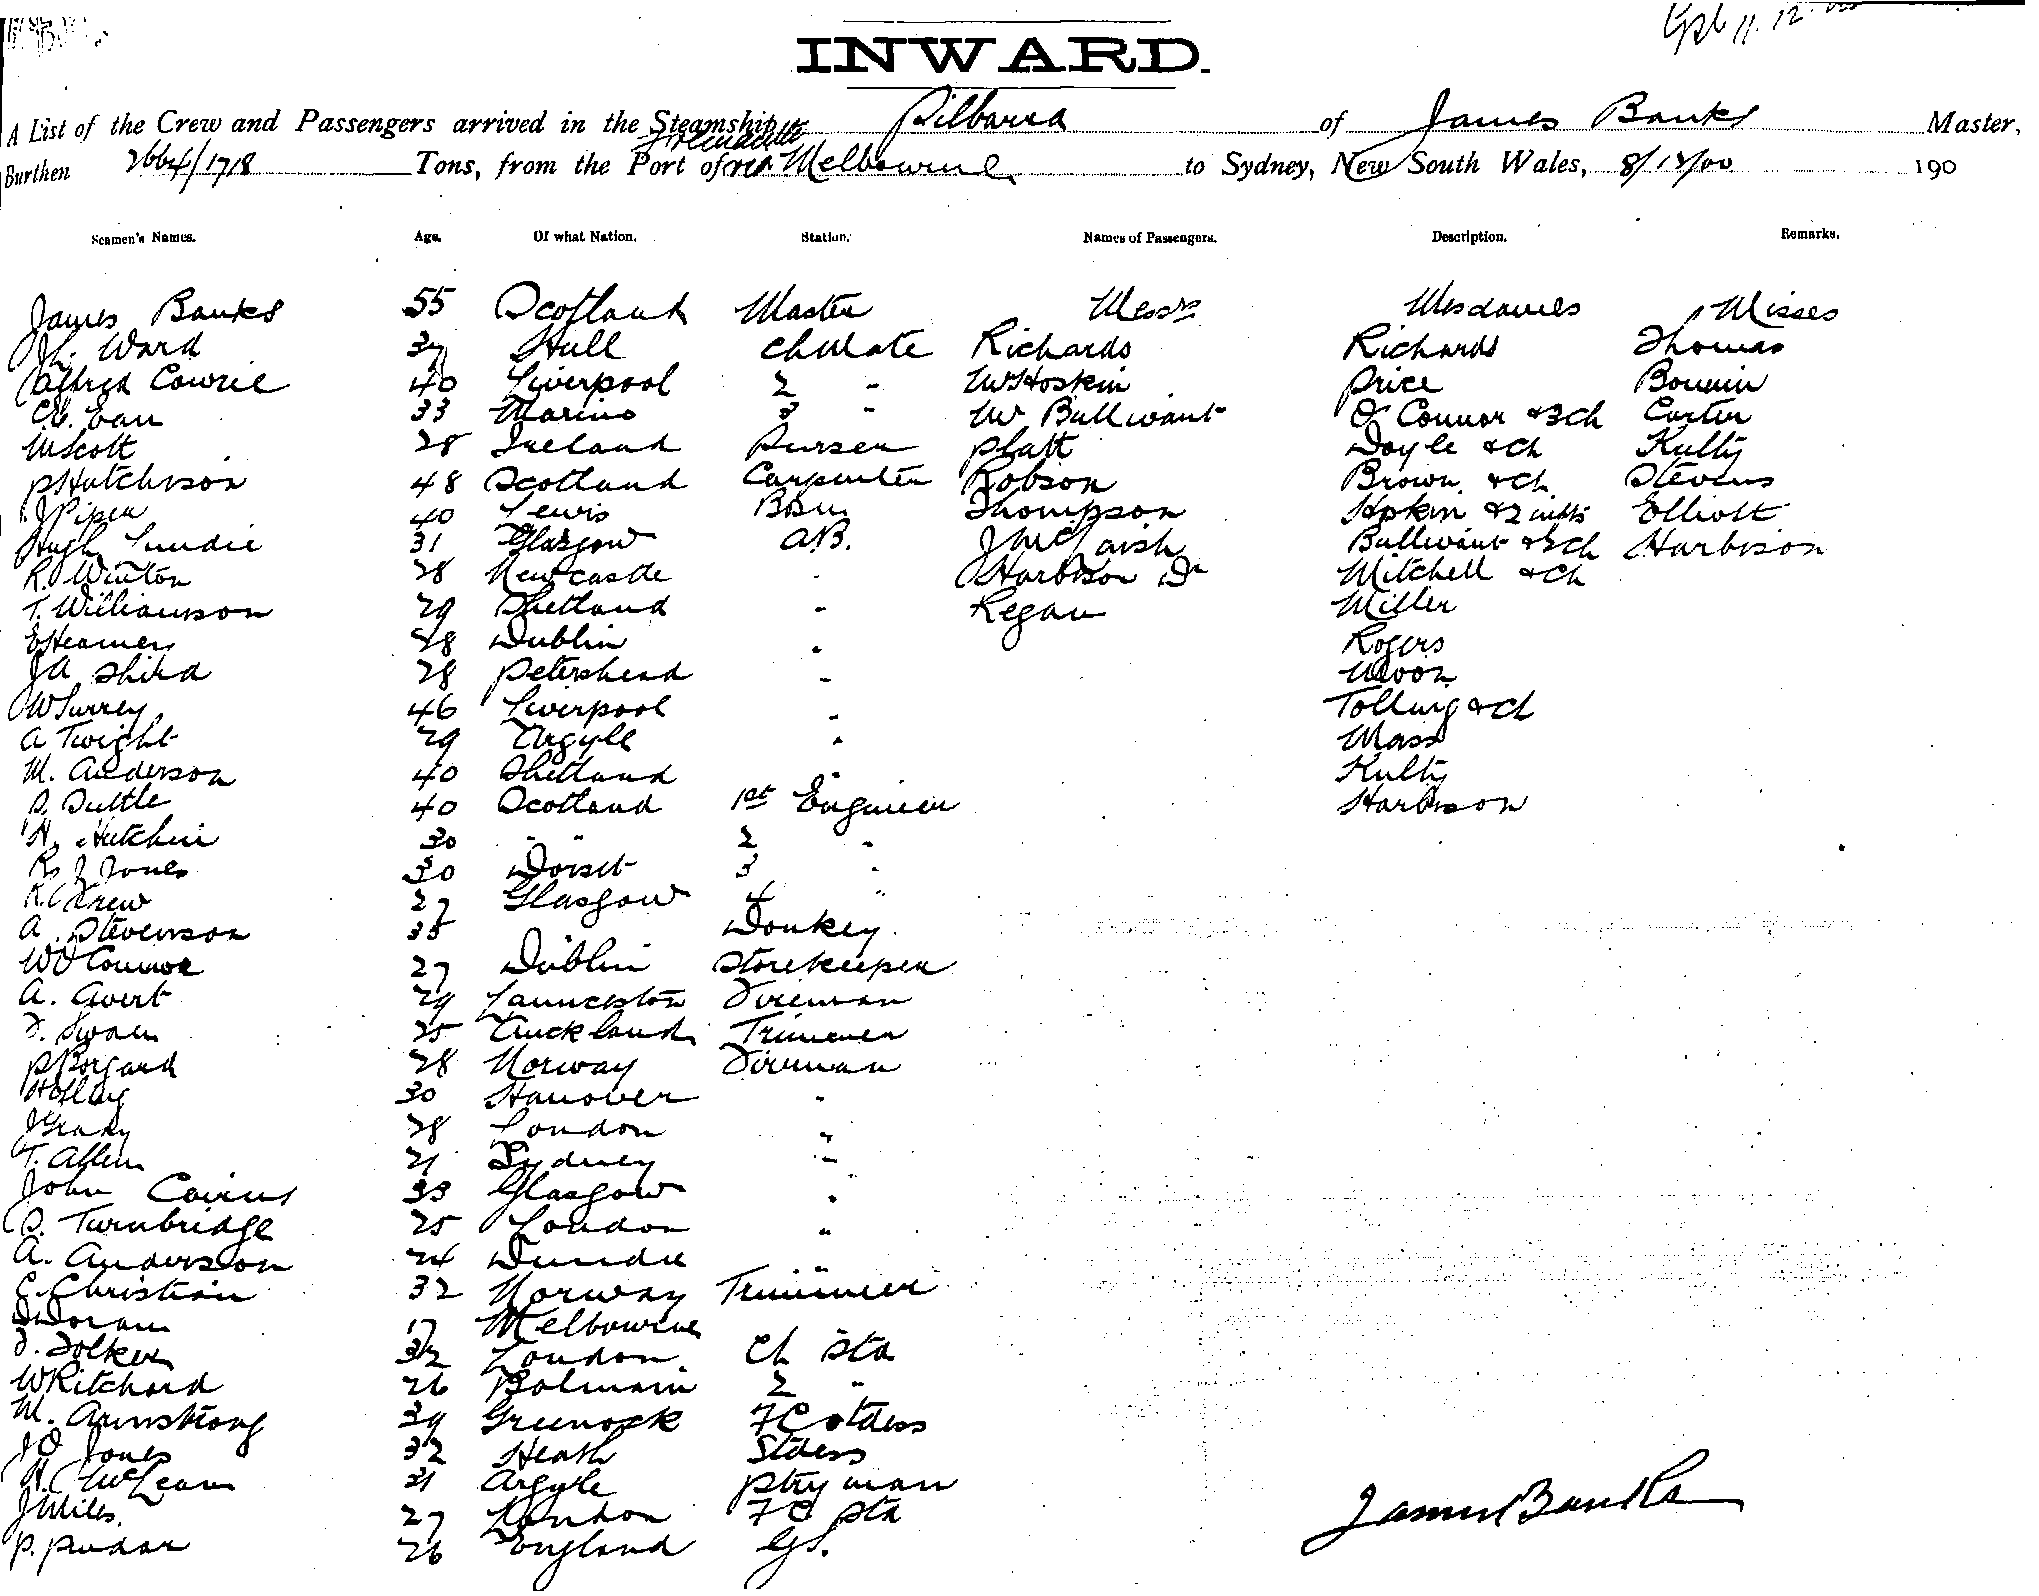 11.12.00
INWARD.
A List of the Crew and Passengers arrived in the Steamship Pilbarra of James Banks Master,
Burthen 2664/1718 Tons, from the Port of Fremantle via Melbourne to Sydney, New South Wales, 8/12/00 190
Seamen's Names. Age. Of what Nation. Station. Names of Passengers. Description. Remarks.
James Banks 55 Scotland Master Messrs Mesdames Misses
Ward 37 Hull Ch Mate Richards Richards Thomas
Alfred Cowrie 40 Liverpool 2 " Hoskin Price
33 3 " Bullivant O'Connor & 3 ch Carter
W Scott 28 Ireland Purser Platt Doyle & ch Kulty
P Hutchison 48 Scotland Carpenter Robson Brown & ch Stevens
J Piper 40 Lewis BSn Thompson Elliott
Hugh Lundie 31 Glasgow A.B. Bullivant Harbison
R. Winton 28 Newcastle " Harbison Dr Mitchell & ch
T. Williamson 29 Shetland " Regan Miller
28 Dublin " Rogers
J A Shird 28 Peterhead " Moon
W Surrey 46 Liverpool " & ch
A Twight 29 Argyle " Moss
M. Anderson 40 Shetland " Kulty
Suttle 40 Scotland 1st Engineer Harbison
30 " " 2 "
R J Jones 30 Dorset 3 "
Crew 27 Glasgow 4 "
A. Stevenson 35 Donkey
W O'Connor 27 Dublin Storekeeper
A. Avert 29 Launceston Fireman
Swain 25 Auckland Trimmer
P Borgard 28 Norway Fireman
30 Hanover "
J Grady 28 London "
T. Allen 21 Sydney "
John Cairns 33 Glasgow "
Turnbridge 25 London "
A. Anderson 24 Dundee "
C. Christian 32 Norway Trimmer
D Doran 17 Melbourne
32 London Ch Std
W Ritchard 26 Balmain 2 "
M. Armstrong 39 Greenock F C Stdess
Jones 32 Heath Stdess
McLean 31 Argyle Ptryman
J Miles 27 London F C Std
P. 26 England G.S.
James Banks